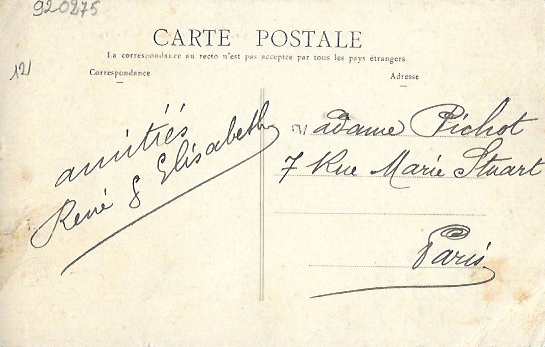 920275
CARTE POSTALE
La correspondance au recto n'est pas acceptée par tous les pays étrangers.
12/
Correspondance
Adresse
amitiés
René & Elisabeth
Madame Pichot
7 Rue Marie Stuart
Paris